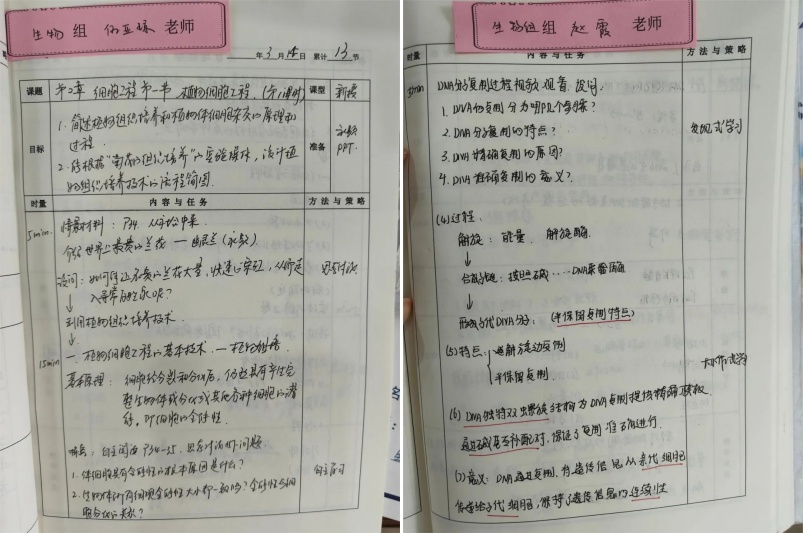 生物 组 老师
年 3 月 14 日 累计 13 节
课题
第2章 细胞工程 第一节 植物细胞工程 (第1课时)
课型
新授
目标
1. 简述植物组织培养和植物体细胞杂交的原理和
过程.
2. 能根据“菊花的组织培养”的实验操作, 设计植
物组织培养技术的流程简图.
准备
PPT.
时量
内容与任务
方法与策略
5min
情景材料: P34. 从社会中来.
介绍世界上最贵的兰花 —
设问: 如何
↓
利用植物组织培养技术.
↓
15min
一. 植物细胞工程的基本技术. —
基本原理: 细胞经分裂和分化后, 仍然具有产生完
整生物体或分化成其他各种细胞的潜
能. 即细胞的全能性.
自主阅读 P34-35. 思考讨论 问题
1. 体细胞具有全能性的根本原因是什么?
自主学习
生物组 赵霞 老师
时量
内容与任务
方法与策略
DNA分子复制过程视频 观看. 设问:
1. DNA的复制分为哪几个步骤?
2. DNA分子复制的特点?
3. DNA精确复制的原因?
4. DNA精确复制的意义?
发现式学习
(4) 过程.
解旋: 能量. 解旋酶.
↓
合成子链: 按照碱 ····· DNA聚合酶
↓
形成子代DNA分子. (半保留复制特点)
(5) 特点: { 边解旋边复制
半保留复制.
(6) DNA独特双螺旋结构为DNA复制提供精确模板.
通过碱基互补配对, 保证了复制准确进行.
(7) 意义: DNA通过复制, 将遗传信息从亲代细胞
传递给子代细胞, 保持了遗传信息的连续性